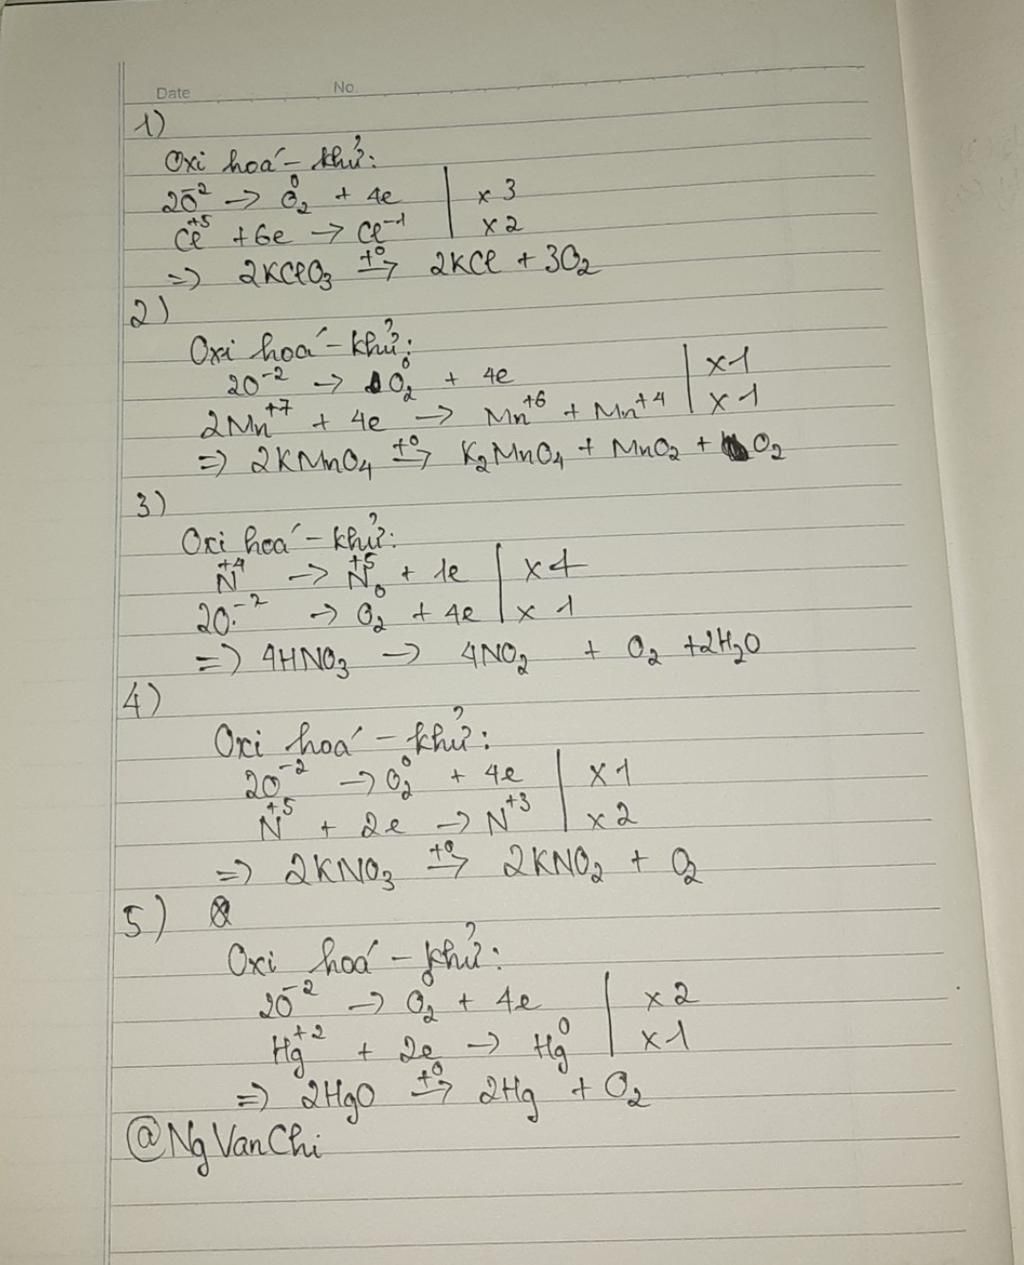 Date No
1)
Oxi hoá - khử:
2O⁻² → O₂⁰ + 4e | x 3
Cl⁺⁵ + 6e → Cl⁻¹ | x 2
=> 2KClO₃ t⁰→ 2KCl + 3O₂
2)
Oxi hoá - khử:
2O⁻² → O₂⁰ + 4e | x 1
2Mn⁺⁷ + 4e → Mn⁺⁶ + Mn⁺⁴ | x 1
=> 2KMnO₄ t⁰→ K₂MnO₄ + MnO₂ + O₂
3)
Oxi hoá - khử:
N⁺⁴ → N⁺⁵ + 1e | x 4
2O⁻² → O₂⁰ + 4e | x 1
=> 4HNO₃ → 4NO₂ + O₂ + 2H₂O
4)
Oxi hoá - khử:
2O⁻² → O₂⁰ + 4e | x 1
N⁺⁵ + 2e → N⁺³ | x 2
=> 2KNO₃ t⁰→ 2KNO₂ + O₂
5)
Oxi hoá - khử:
2O⁻² → O₂ + 4e | x 2
Hg⁺² + 2e → Hg⁰ | x 1
=> 2HgO t⁰→ 2Hg + O₂
@NgVanChi